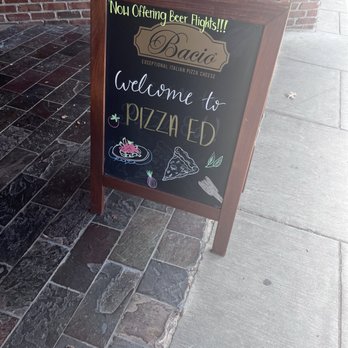 Now Offering Beer Flights!!!
Bacio
EXCEPTIONAL ITALIAN PIZZA CHEESE
Welcome to
PIZZA ED